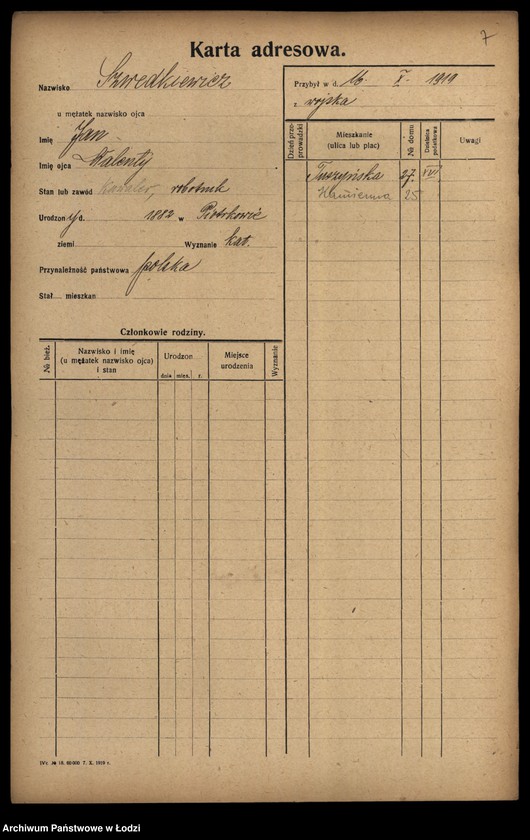 7
Karta adresowa.
Nazwisko Szwedkiewicz
u mężatek nazwisko ojca
Imię Jan
Imię ojca Walenty
Stan lub zawód kawaler, robotnik
Urodzon y d. 1882 w Piotrkowie
ziemi Wyznanie kat.
Przynależność państwowa polska
Stał. mieszkan
Przybył w d. 16 X. 1919
z wojska
Dzień przeprowadzki
Mieszkanie
(ulica lub plac)
№ domu
Dzielnica podatkowa
Uwagi
Tuszyńska 27. XVI
Kamienna 25
Członkowie rodziny.
№ bież.
Nazwisko i imię
(u mężatek nazwisko ojca)
i stan
Urodzon
dnia mies. r.
Miejsce
urodzenia
Wyznanie
7. X. 1919 r.
Archiwum Państwowe w Łodzi